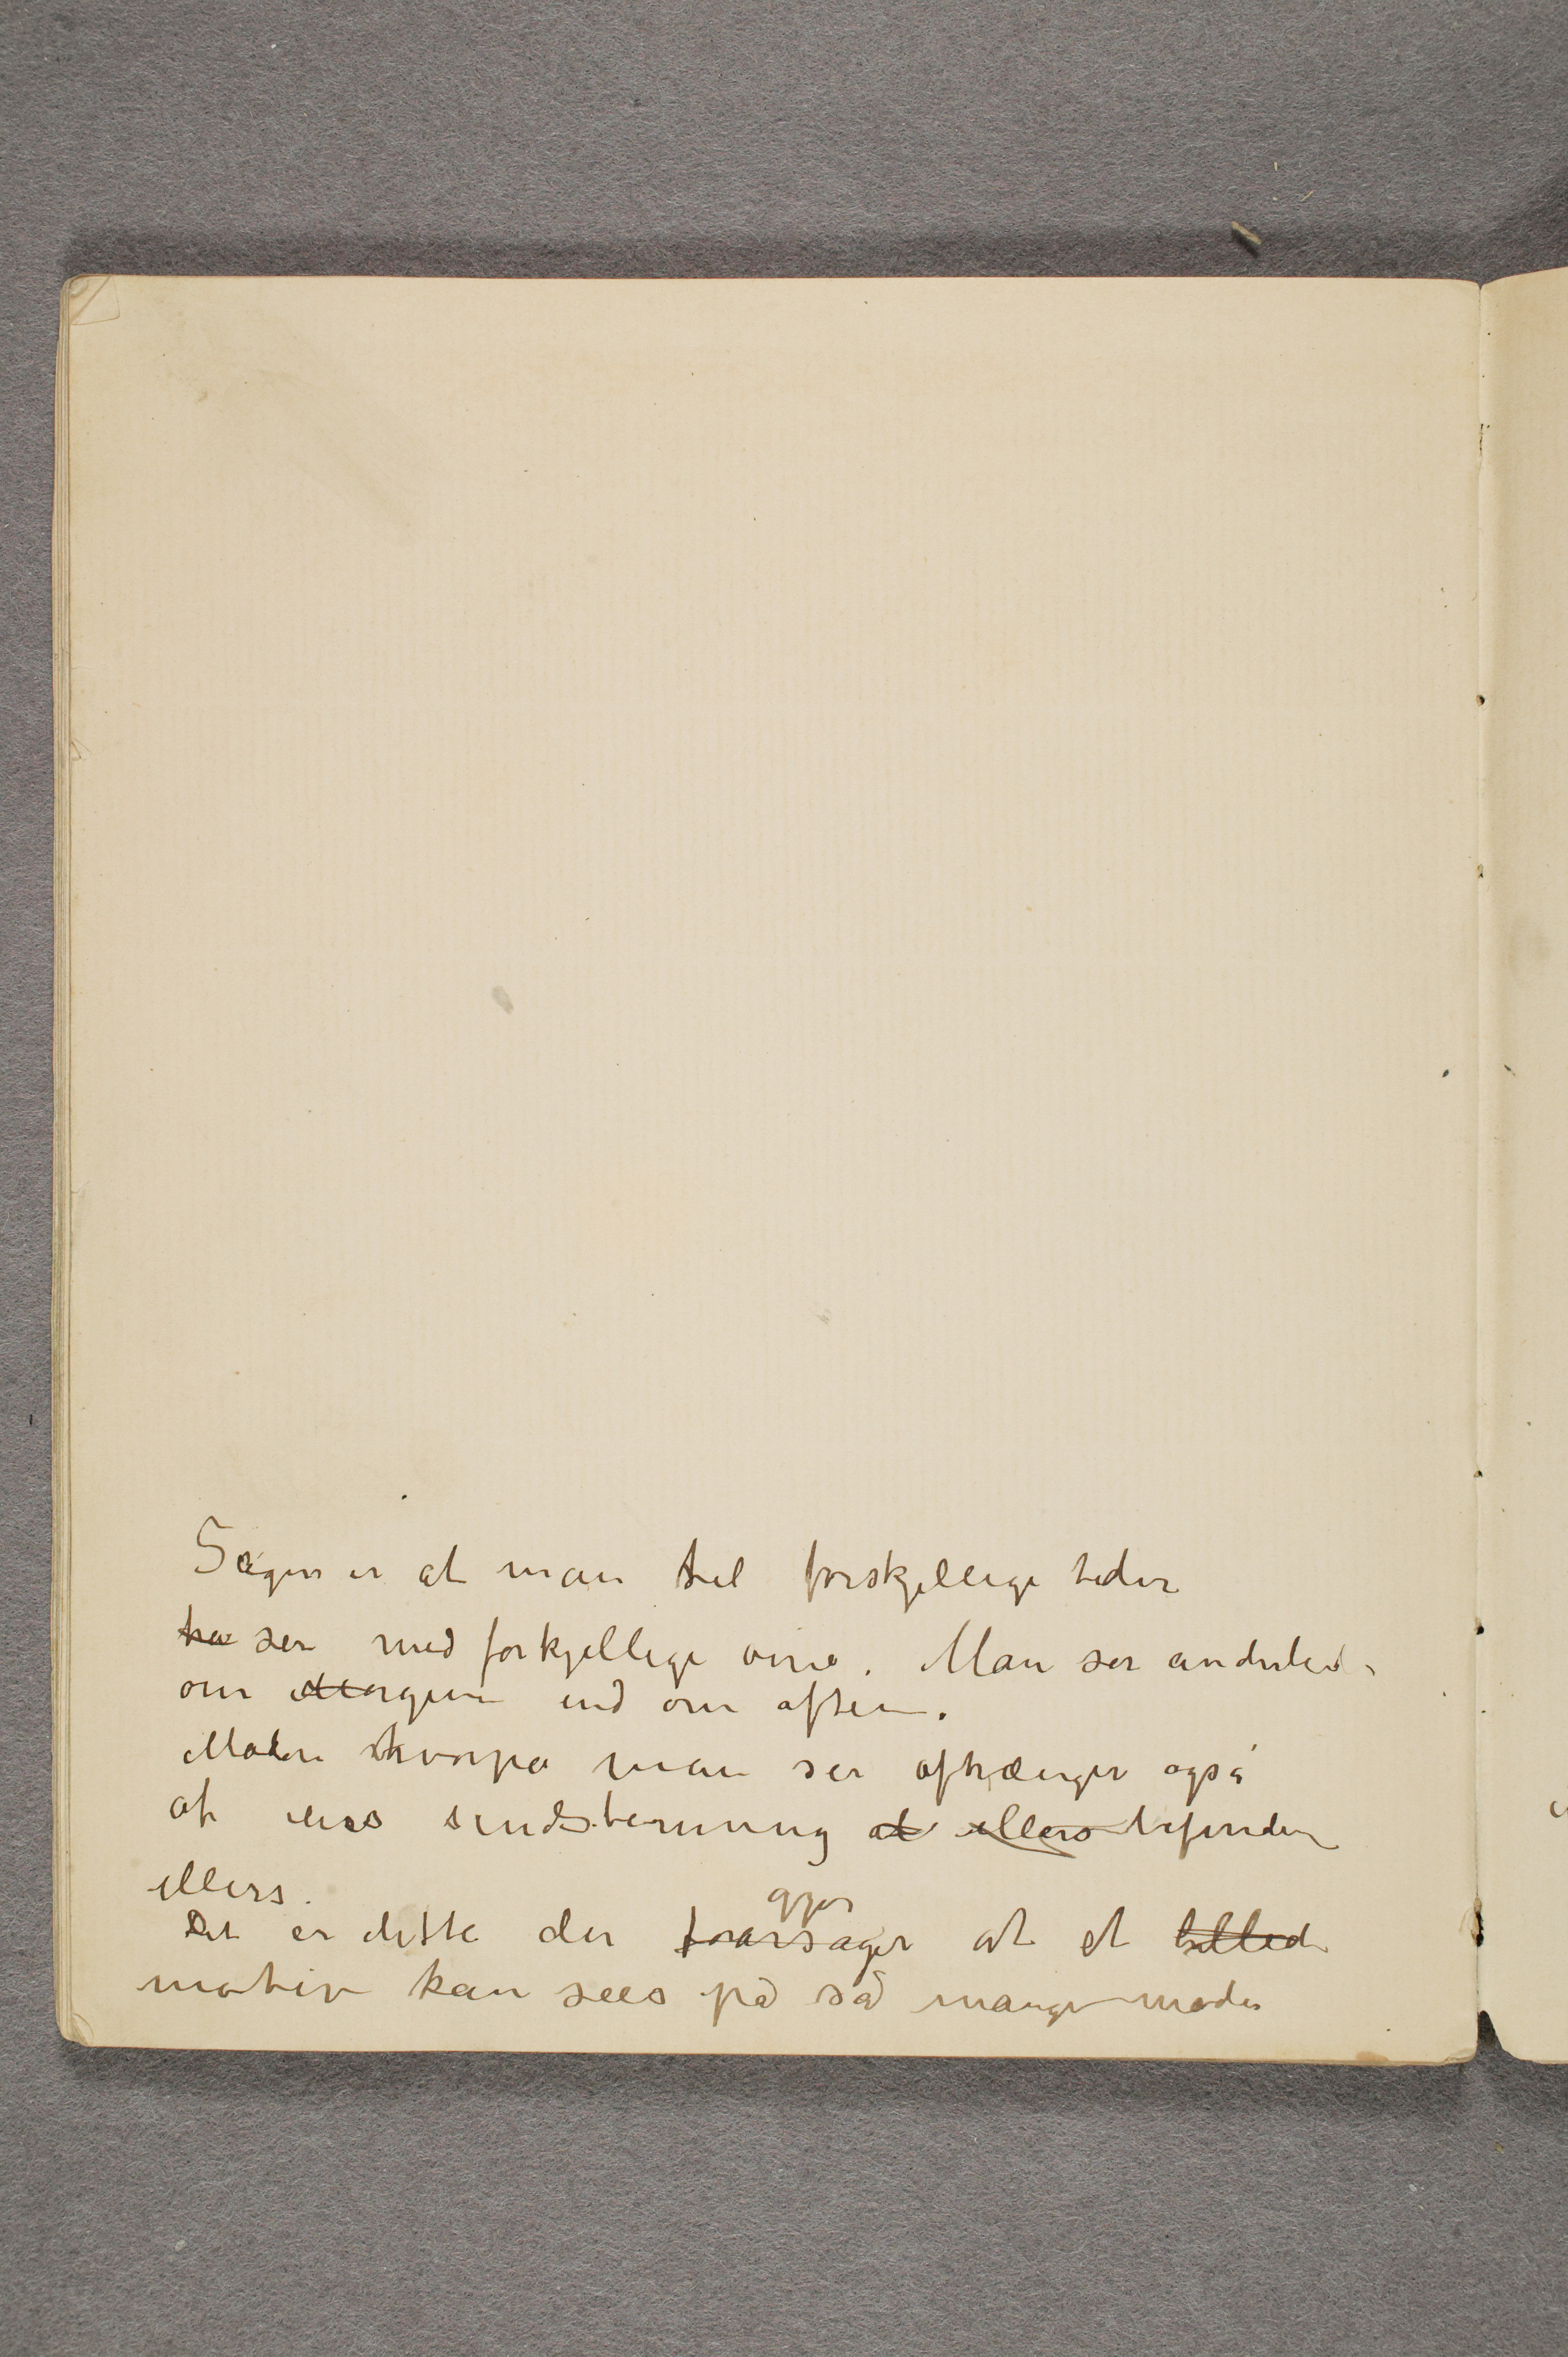 Sagen er at man til forskjellige tider
ha ser med forkjellige øine. Man ser anderledes
om Morgenen end om aften.
Måden hvorpå man ser afhænger også
af ens sindstemning at ellers befinden
ellers.
gjør
Det er dette der forårsager at et billed
motiv kan sees på så mange måder